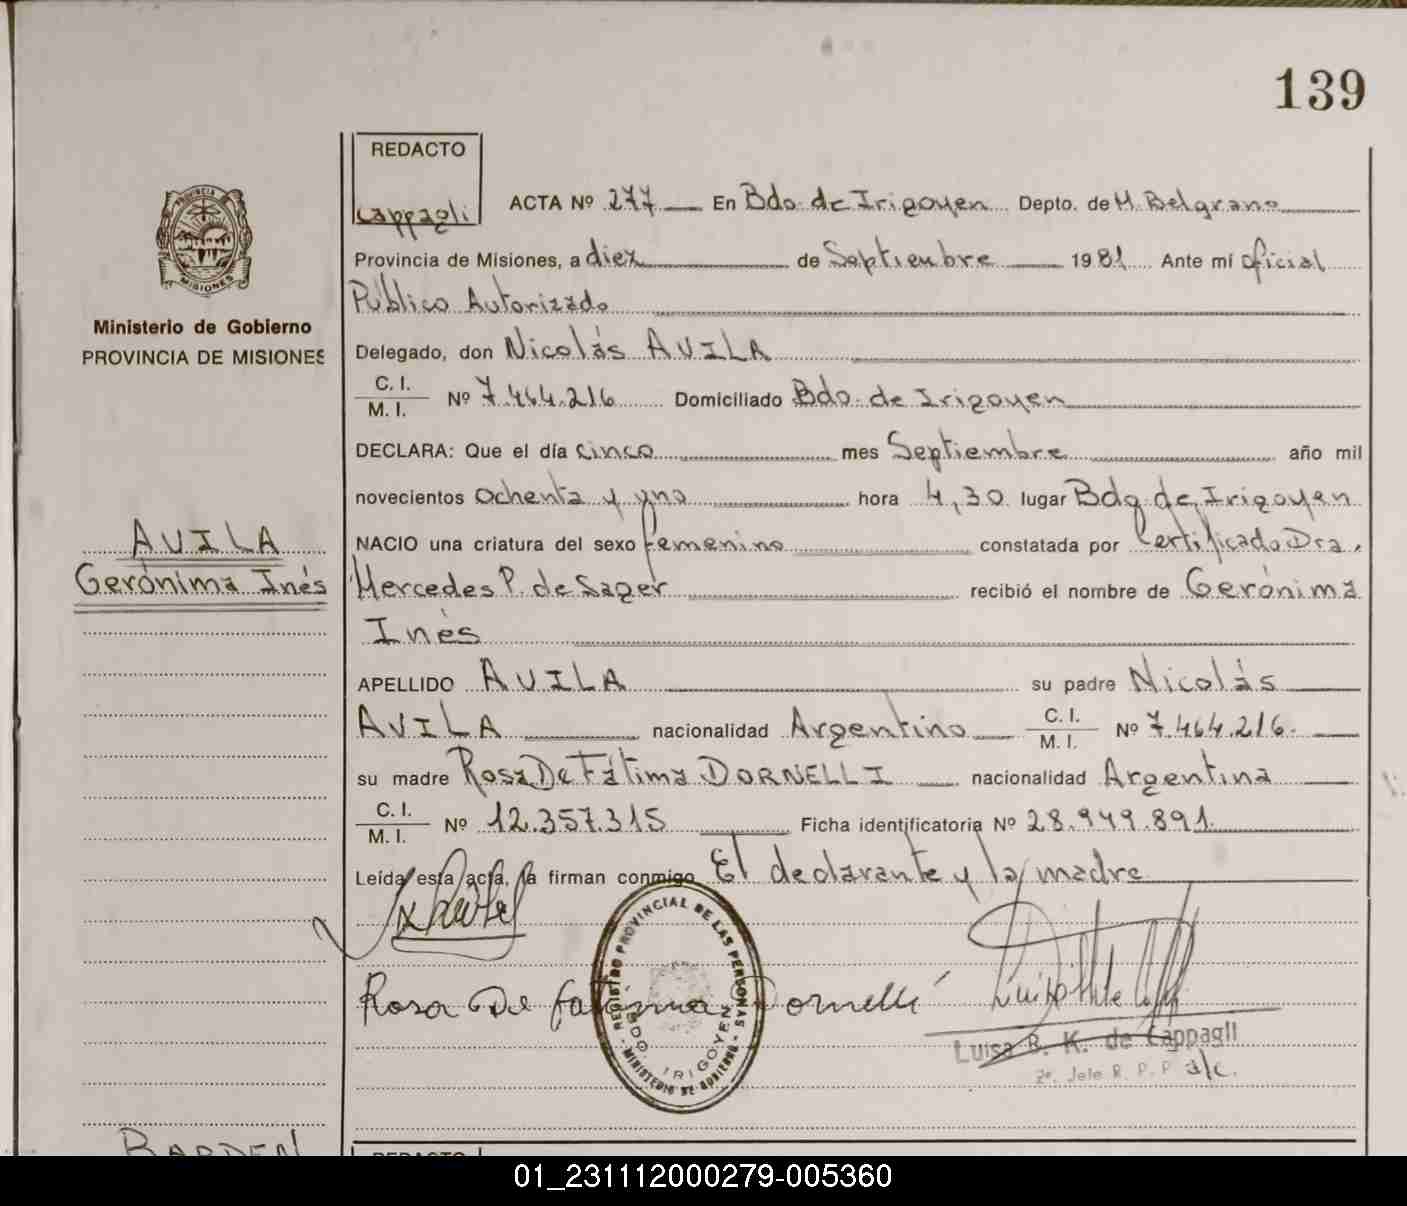 139
REDACTO
Cappagli
ACTA Nº 277 En Bdo. de Irigoyen Depto. de M. Belgrano
Provincia de Misiones, a diez de Septiembre 1981 Ante mí oficial
Público Autorizado
Delegado, don Nicolás AVILA
C. I.
M. I. Nº 7.464.216 Domiciliado Bdo. de Irigoyen
DECLARA: Que el día cinco mes Septiembre año mil
novecientos ochenta y uno hora 4,30 lugar Bdo. de Irigoyen
NACIO una criatura del sexo femenino constatada por Certificado Dra.
Mercedes P. de Sager recibió el nombre de Gerónima
Inés
APELLIDO AVILA su padre Nicolás
AVILA nacionalidad Argentino C. I. M. I. Nº 7.464.216.
su madre Rosa De Fátima DORNELLI nacionalidad Argentina
C. I.
M. I. Nº 12.357.315 Ficha identificatoria Nº 28.949.891.
Leída esta acta, la firman conmigo El declarante y la madre
Rosa De Fatima Dornelli
REGISTRO PROVINCIAL DE LAS PERSONAS
BDO. IRIGOYEN
MINISTERIO DE GOBIERNO
Luisa B. K. de Cappagli
2º. Jefe R. P. P. a/c.
PROVINCIA
MISIONES
Ministerio de Gobierno
PROVINCIA DE MISIONES
AVILA
Gerónima Inés
REDACTO
01_231112000279-005360